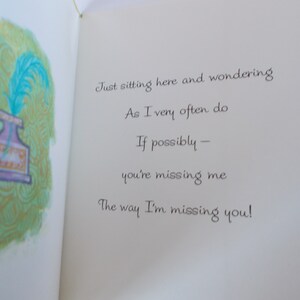 Just sitting here and wondering
As I very often do
If possibly —
you're missing me
The way I'm missing you!